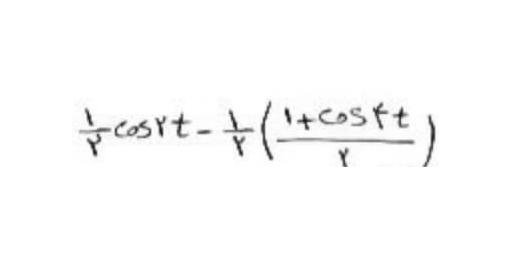 ۱/۲ cos۲t - ۱/۲ ((۱+cos۴t)/۲)